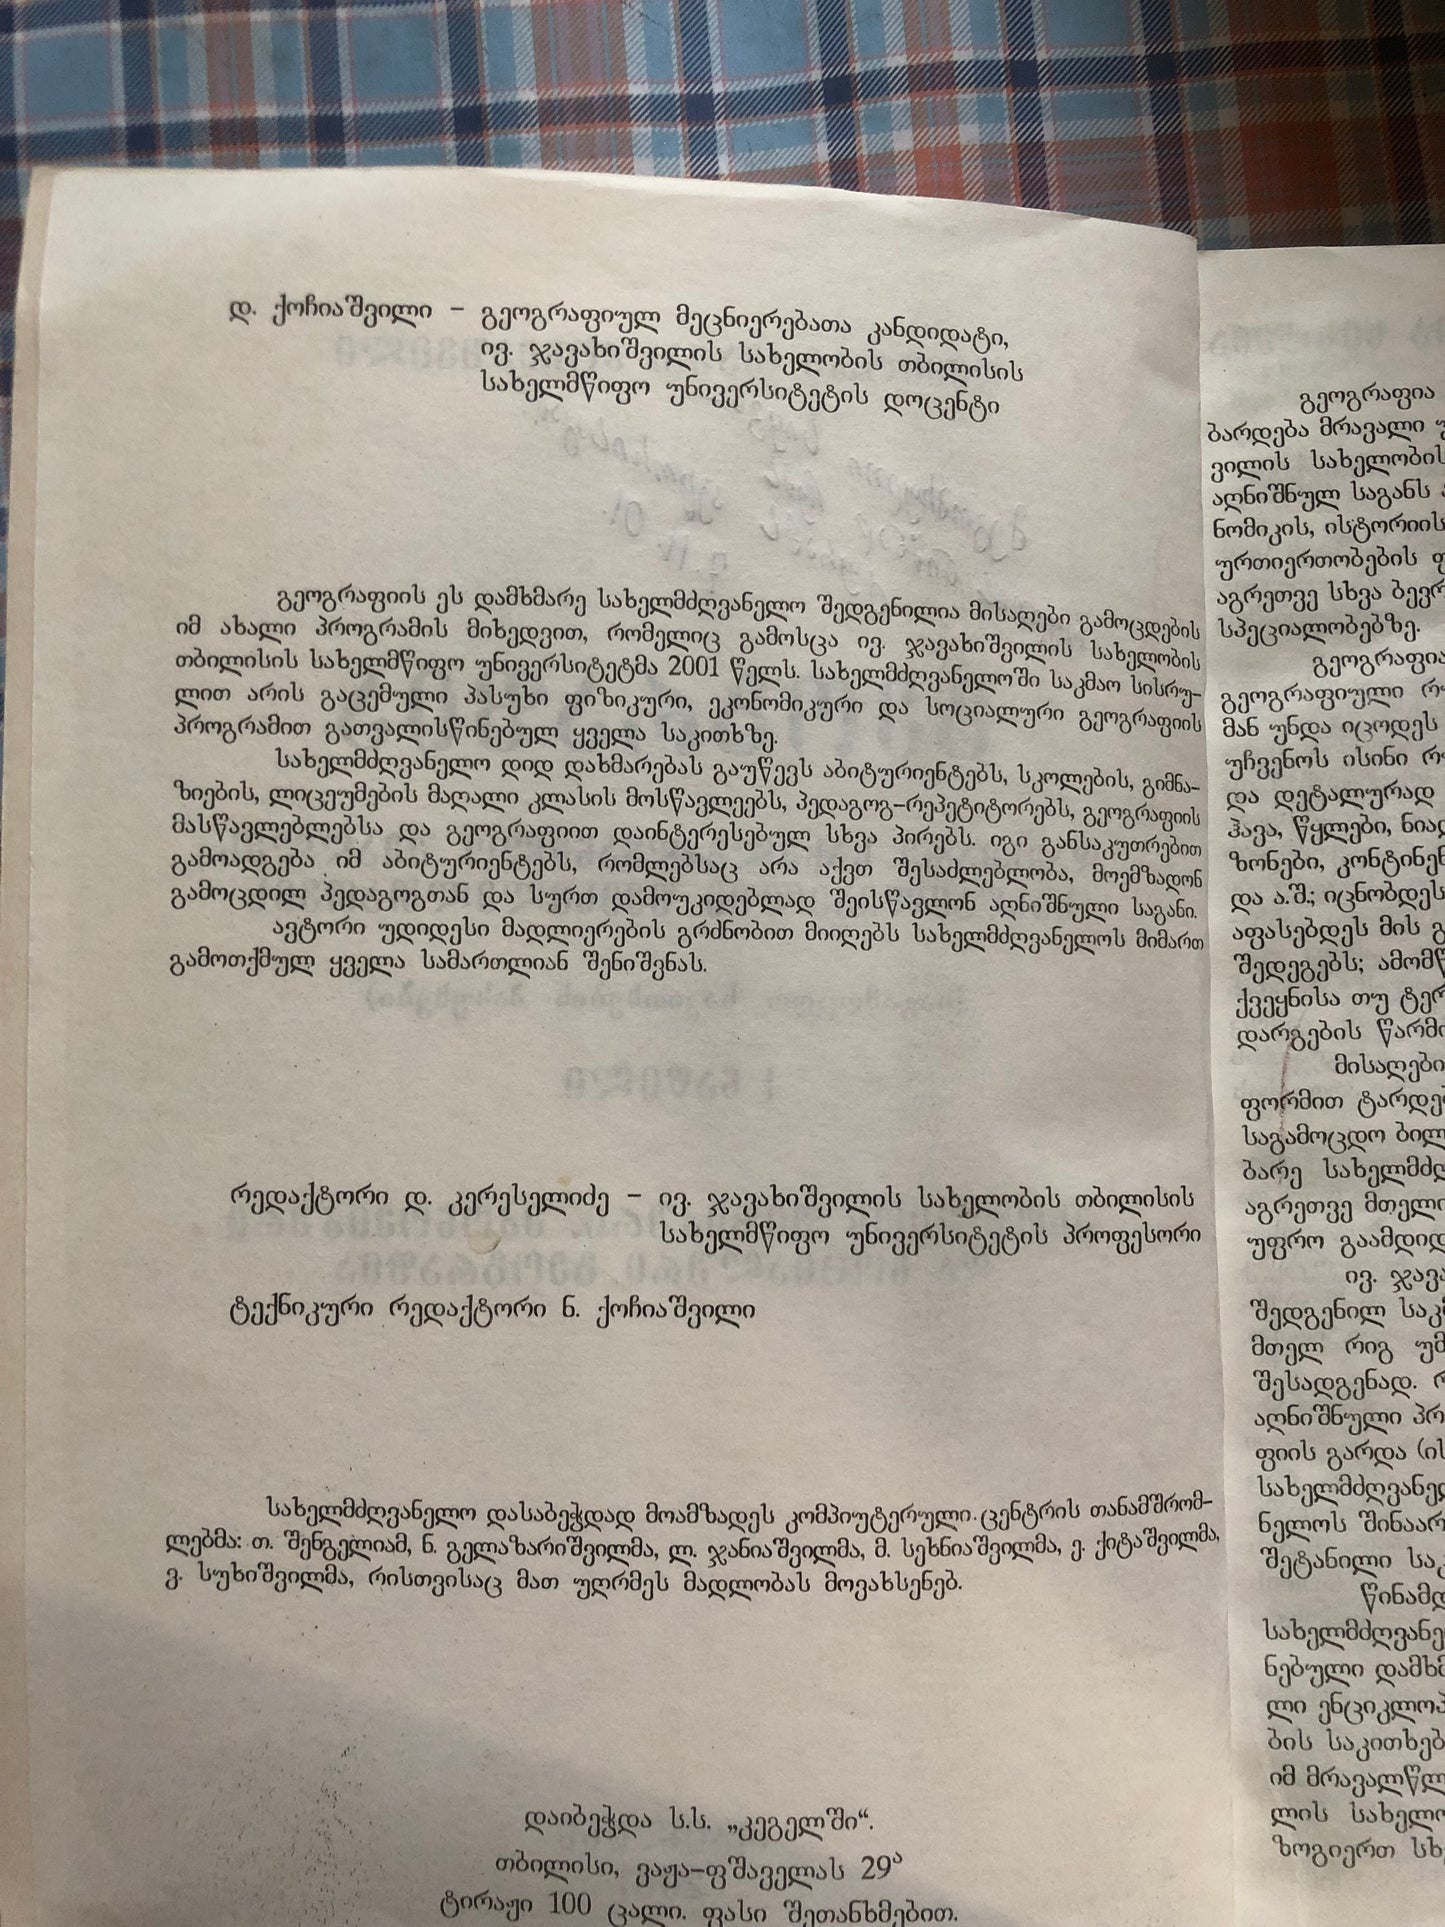 დ. ქოჩიაშვილი – გეოგრაფიულ მეცნიერებათა კანდიდატი,
ივ. ჯავახიშვილის სახელობის თბილისის
სახელმწიფო უნივერსიტეტის დოცენტი
გეოგრაფიის ეს დამხმარე სახელმძღვანელო შედგენილია მისაღები გამოცდების
იმ ახალი პროგრამის მიხედვით, რომელიც გამოსცა ივ. ჯავახიშვილის სახელობის
თბილისის სახელმწიფო უნივერსიტეტმა 2001 წელს. სახელმძღვანელოში საკმაო სისრუ-
ლით არის გაცემული პასუხი ფიზიკური, ეკონომიკური და სოციალური გეოგრაფიის
პროგრამით გათვალისწინებულ ყველა საკითხზე.
სახელმძღვანელო დიდ დახმარებას გაუწევს აბიტურიენტებს, სკოლების, გიმნა-
ზიების, ლიცეუმების მაღალი კლასის მოსწავლეებს, პედაგოგ-რეპეტიტორებს, გეოგრაფიის
მასწავლებლებსა და გეოგრაფიით დაინტერესებულ სხვა პირებს. იგი განსაკუთრებით
გამოადგება იმ აბიტურიენტებს, რომლებსაც არა აქვთ შესაძლებლობა, მოემზადონ
გამოცდილ პედაგოგთან და სურთ დამოუკიდებლად შეისწავლონ აღნიშნული საგანი.
ავტორი უდიდესი მადლიერების გრძნობით მიიღებს სახელმძღვანელოს მიმართ
გამოთქმულ ყველა სამართლიან შენიშვნას.
რედაქტორი დ. კერესელიძე – ივ. ჯავახიშვილის სახელობის თბილისის
სახელმწიფო უნივერსიტეტის პროფესორი
ტექნიკური რედაქტორი ნ. ქოჩიაშვილი
სახელმძღვანელო დასაბეჭდად მოამზადეს კომპიუტერული ცენტრის თანამშრომ-
ლებმა: თ. შენგელიამ, ნ. გელაზარიშვილმა, ლ. ჯანიაშვილმა, მ. სეხნიაშვილმა, ე. ქიტაშვილმა,
ვ. სუხიშვილმა, რისთვისაც მათ უღრმეს მადლობას მოვახსენებ.
დაიბეჭდა ს.ს. „კეგელში“.
თბილისი, ვაჟა-ფშაველას 29ა
ტირაჟი 100 ცალი. ფასი შეთანხმებით.
გეოგრაფია
ბარდება მრავალი
ვილის სახელობის
აღნიშნულ საგანს
ნომიკის, ისტორიის
ურთიერთობების
აგრეთვე სხვა
სპეციალობებზე.
გეოგრაფია
გეოგრაფიული
მან უნდა იცოდეს
უჩვენოს ისინი
და დეტალურად
ჰავა, წყლები,
ზონები,
და ა.შ.; იცნობდეს
აფასებდეს მის
შედეგებს;
ქვეყნისა თუ
დარგების
მისაღები
ფორმით
საგამოცდო
ბარე
აგრეთვე
უფრო
ივ.
შედგენილ
მთელ რიგ
შესადგენად.
აღნიშნული
ფიის გარდა
ნელოს
შეტანილი
ნებული
ლი
ბის
იმ
ლის
ზოგიერთ